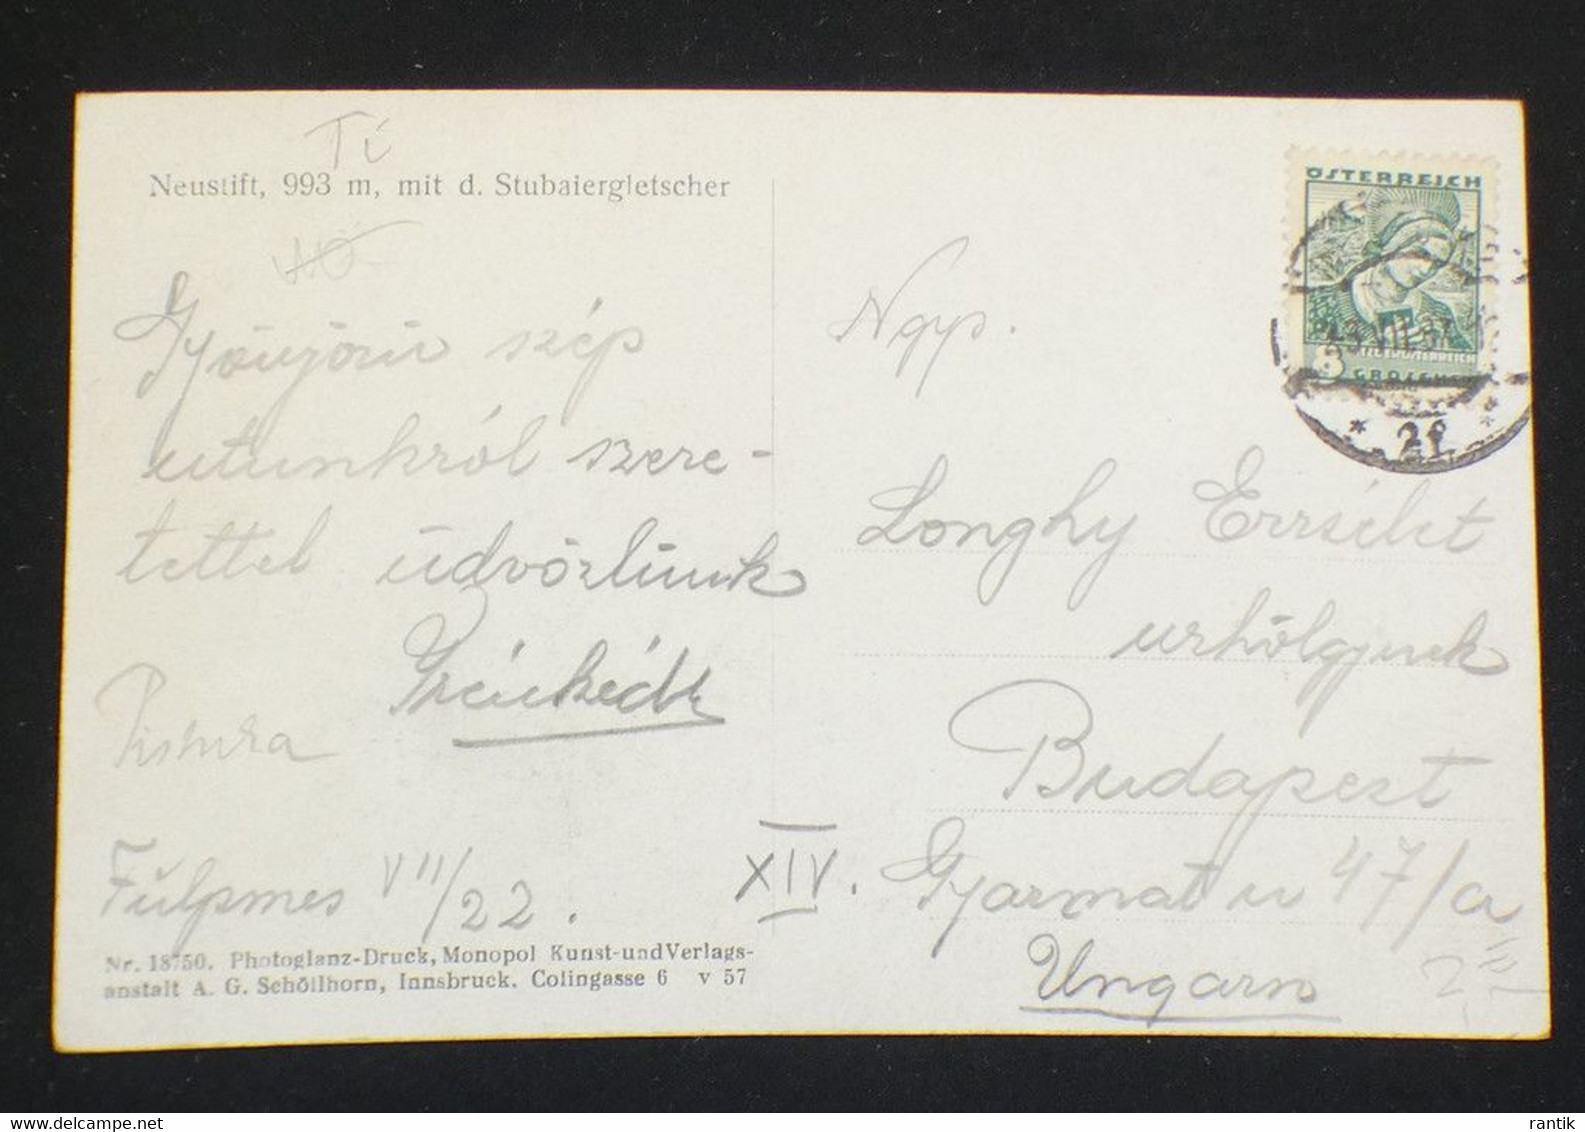 Ti
Neustift, 993 m, mit d. Stubaiergletscher
Gyönyörű szép
utunkról szere-
tettel üdvözlünk
Pistuka
Fulpmes VII/22.
Nr. 18750. Photoglanz-Druck, Monopol Kunst-und Verlags-
anstalt A. G. Schöllhorn, Innsbruck. Colingasse 6 v 57
ÖSTERREICH
GROSCHEN
Ngys.
Longhy Erzsébet
urhölgynek
Budapest
XIV. Gyarmat u 47/a
Ungarn
rantik